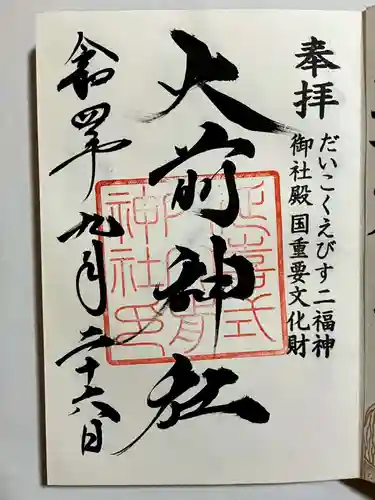 奉拝
だいこくえびす二福神
御社殿国重要文化財
大前神社
延喜式
神社
令和四年九月二十六日